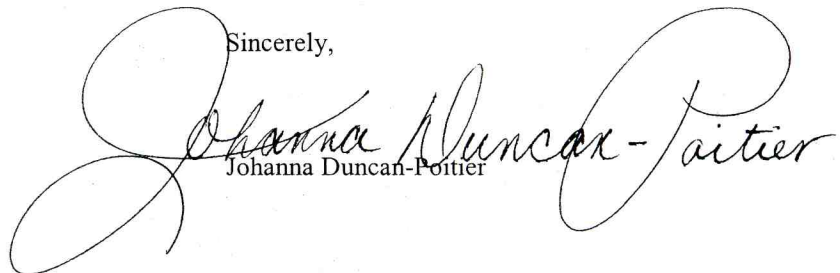 Sincerely,
Johanna Duncan-Poitier
Johanna Duncan-Poitier